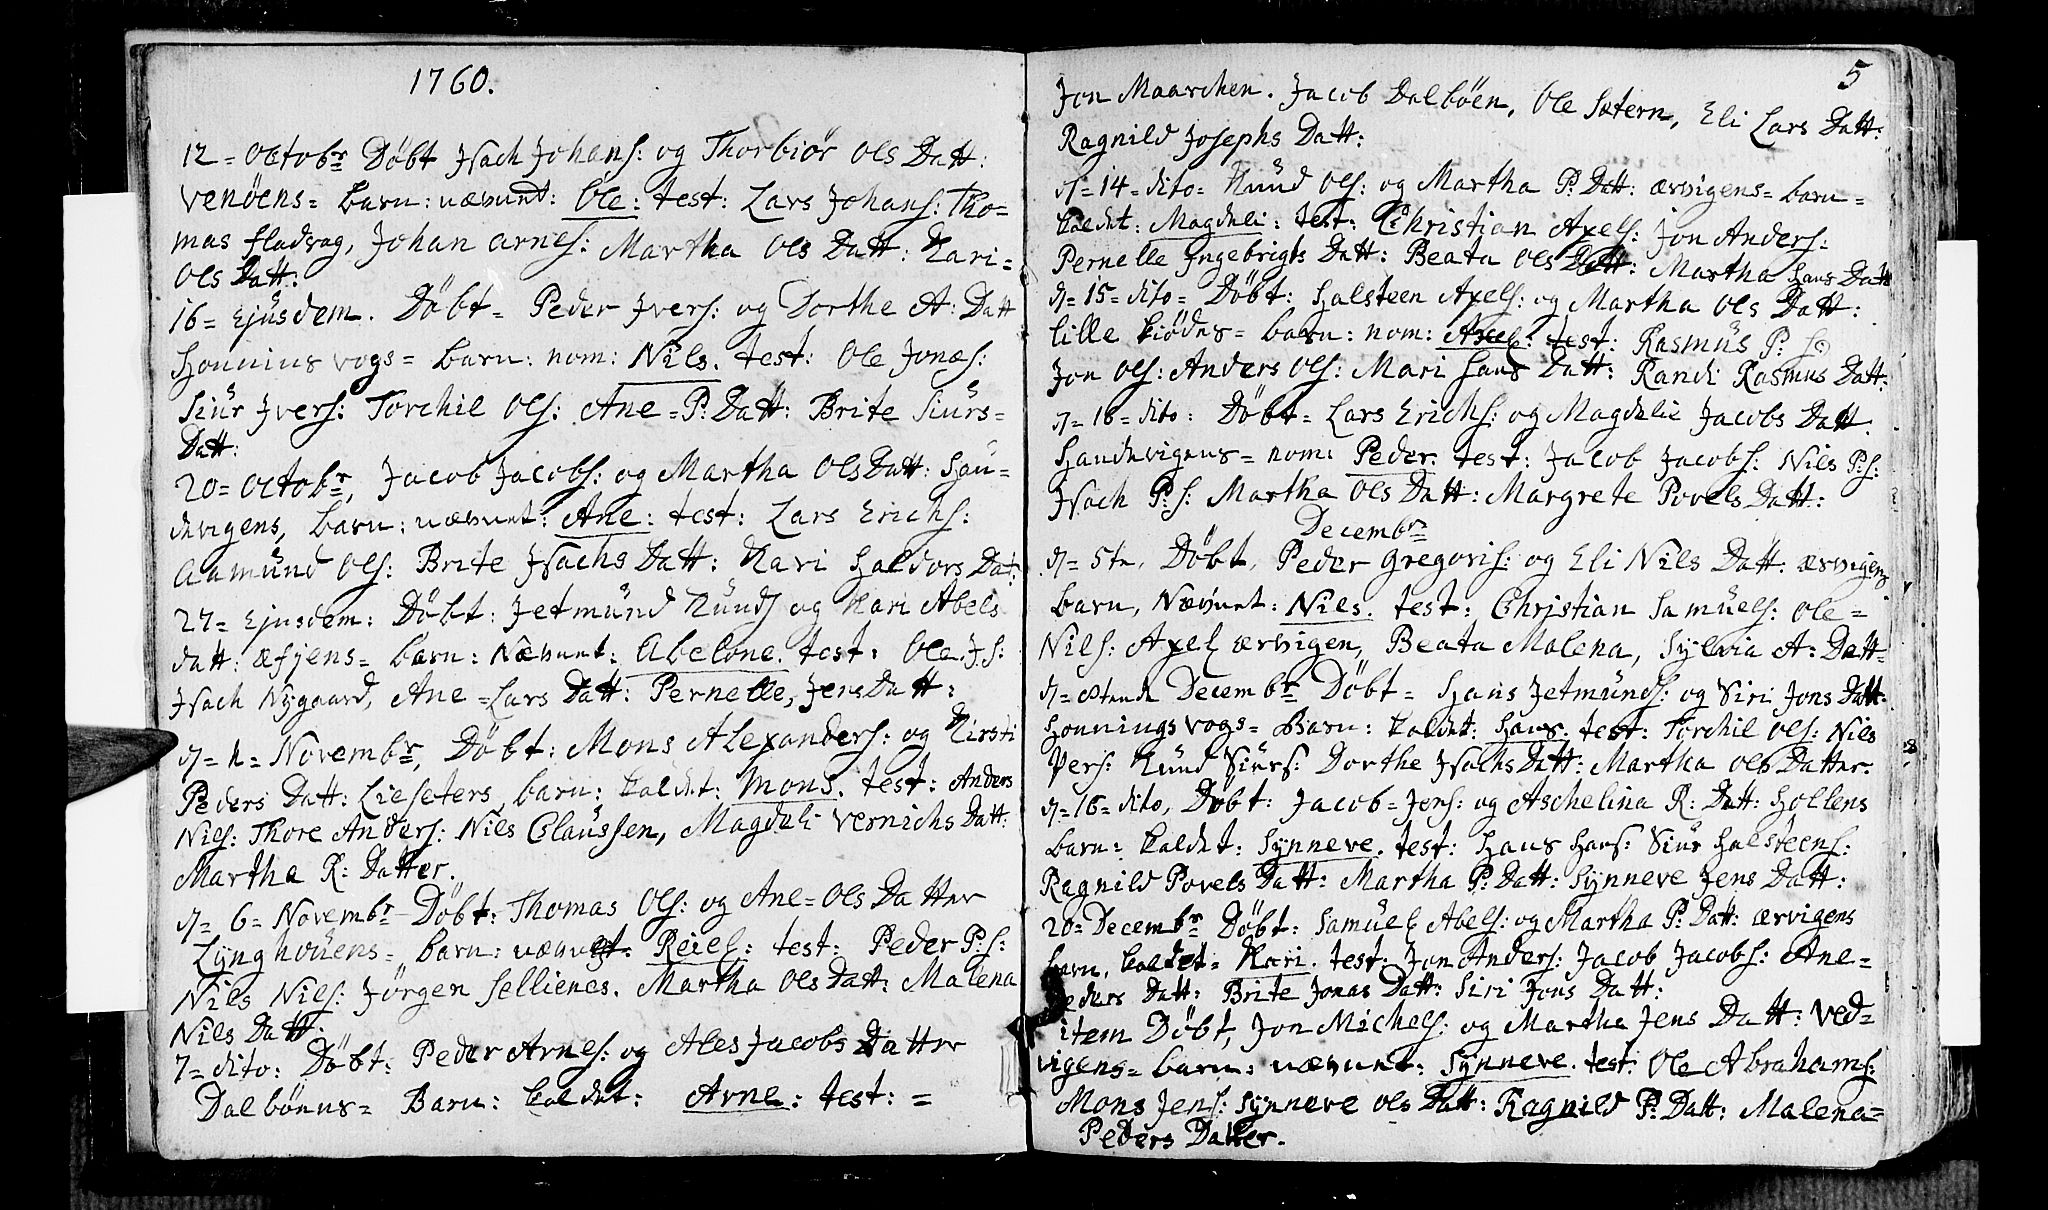 1760.
12 = Octobr Døbt Isach Johans: og Thorbiør Ols Datt:
Venöens = barn: nævnt: Ole: test: Lars Johans: Tho=
mas fladvag, Johan arnes: Martha Ols Datt: Kari =
Ols Datt:
16 = Ejusdem. Döbt = Peder Ivers: og Dorthe A: Datt
Honnins vogs = barn: nom: Nils. test: Ole Jonæs:
Siur Ivers: Torchil Ols: Ane = P: Datt: Brite Siurs=
Datt:
20 = Octobr, Jacob Jacobs: og Martha Ols Datt: Hau=
devigens, barn: nævnt: Ane: test: Lars Erichs:
Aamund Ols: Brite Isachs Datt: Kari Haldors Dat:
27 = Ejusdem: Döbt: Jetmund Kunds og Kari Abels
datt: æsjens = barn: Nævnt: Abelone. test: Ole J. S:
Isach Nygaard, Ane = Lars Datt: Pernelle, Jens Datt:
Novembr, Döbt: Mons Alexanders: og Kirsti
Peders Datt: Lieseters, barn: kaldet: Mons. test: Anders
Nils: Thore Anders: Nils Claussen, Magdeli Vernichs Datt:
Martha R: Datter.
d = 6 = Novembr Döbt: Thomas Ols: og Ane = Ols Datter
Lynghouens = barn: nævnt: Reiel: test: Peder P: S:
Nils Nils: Jörgen Sellienes. Martha Ols Datt: Malena
Nils Datt:
7 = dito: Döbt: Peder Arnes: og Ales Jacobs Datter
Dalbönns = Barn: kaldet: Arne: test: =
5
Jon Maarchen. Jacob Dalböen, Ole Sætern, Eli Lars Datt:
Ragnild Josephs Datt:
d = 14 = dito = Knud Ols: og Martha P: Datt: ærvigens = barn =
kaldet: Magdeli: test: Christian Axels: Jon Anders:
Pernelle Ingebrigts Datt: Beata Ols Datt: Martha Hans Datt
d = 15 = dito = Döbt: Halsteen Axels: og Martha Ols Datt:
lille fiödes = barn: nom: Axel: test: Rasmus P: S:
Jon Ols: Anders Ols: Mari Hans Datt: Randi Rasmus Datt:
d = 16 = dito: Döbt = Lars Erichs: og Magdelie Jacobs Datt
Haudevigens = nom: Peder. test: Jacob Jacobs: Nils P: S:
Isach P: S: Martha Ols Datt: Margrete Povels Datt:
Decembr
d = 5te, Döbt, Peder Gregoris: og Eli Nils Datt: ærvigens
barn, Nævnt: Nils. test: Christian Samuels: Ole =
Nils: Axel ærvigen, Beata Malena, Sylvia A: Datt =
Decembr Döbt = Hans Jetmunds: og Siri Jons Datt:
Honnings vogs = Barn: kaldet: Hans. test: Torchil Ols: Nils
Pers: Knud Siurs: Dorthe Isachs Datt: Martha Ols Datter.
d = 16 = dito, Döbt: Jacob = Jens: og Aschelina R: Datt: Hollens
barn: kaldet: Synneve. test: Hans Hans: Siur Halsteens:
Ragnild Povels Datt: Martha P: Datt: Synneve Jens Datt:
20 = Decembr Döbt: Samuel Abels: og Martha P: Datt: ærvigens
barn, kaldet = Kari. test: Jon Anders: Jacob Jacobs: Ane =
Peders Datt: Brite Jonas Datt: Siri Jons Datt:
item Döbt, Jon Michels: og Martha Jens Datt: Ved=
vigens = barn: nævnt: Synneve. test: Ole Abrahams:
Mons Jens: Synneve Ols Datt: Ragnild P: Datt: Malena =
Peders Datter.